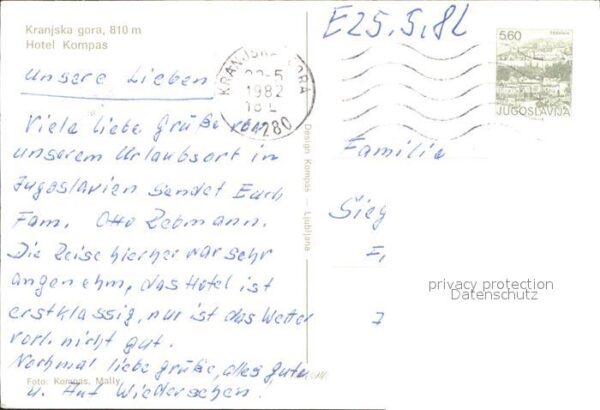 Kranjska gora, 810 m
Hotel Kompas
E 25.5.82
Unsere Lieben
Viele liebe Grüße von
unserem Urlaubsort in
Jugoslavien sendet Euch
Fam. Otto Rebmann.
Die Reise hierher war sehr
angenehm, das Hotel ist
erstklassig, nur ist das Wetter
vorl. nicht gut.
Nochmal liebe Grüße, alles gute
u. Auf Wiedersehen.
Foto: Kompas, Mally
Design Kompas — Ljubljana
KRANJSKA GORA
1982
18
64280
5.60
JUGOSLAVIJA
Familie
Sieg
F,
privacy protection
Datenschutz